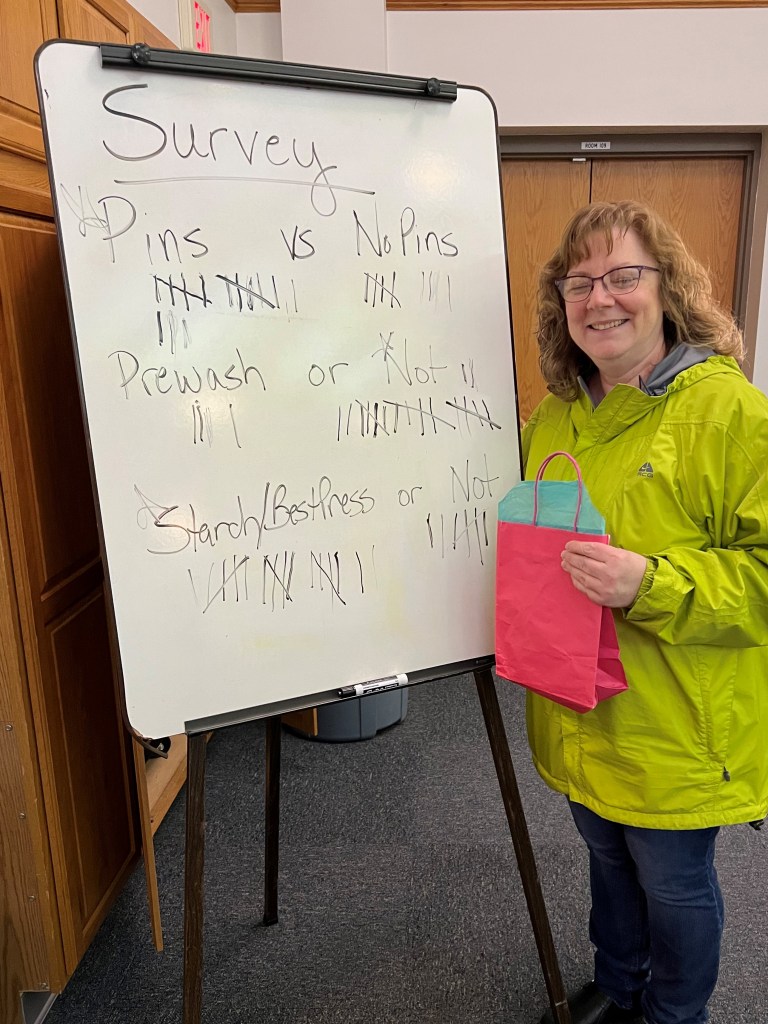 EXIT
ROOM 109
Survey
Pins vs No Pins
Prewash or Not
Starch/BestPress or Not